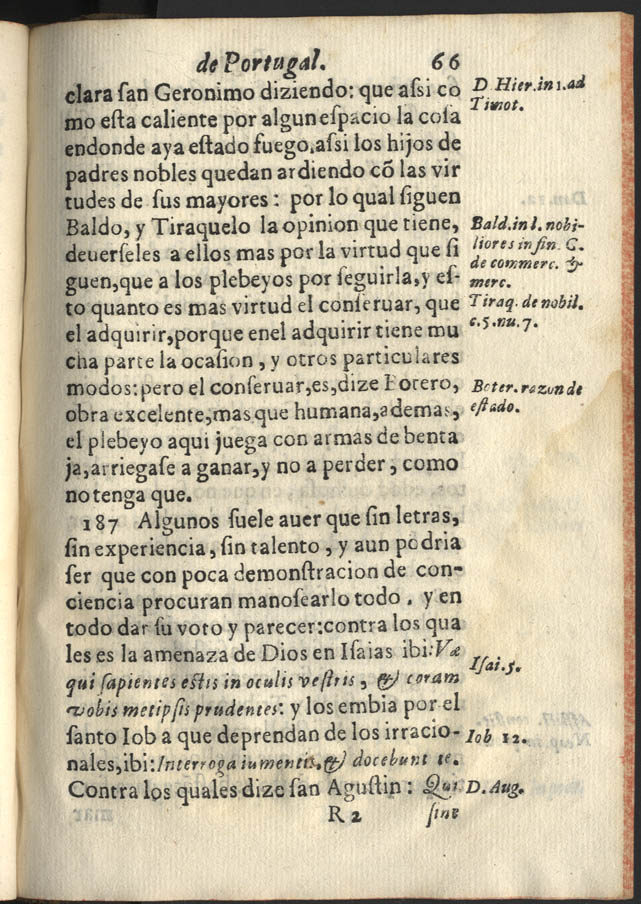 de Portugal. 66
clara san Geronimo diziendo: que assi co
mo esta caliente por algun espacio la cosa
endonde aya estado fuego, assi los hijos de
padres nobles quedan ardiendo cõ las vir
tudes de sus mayores: por lo qual siguen
Baldo, y Tiraquelo la opinion que tiene,
deuerseles a ellos mas por la virtud que si
guen, que a los plebeyos por seguirla, y es-
to quanto es mas virtud el conseruar, que
el adquirir, porque enel adquirir tiene mu
cha parte la ocasion, y otros particulares
modos: pero el conseruar, es, dize Botero,
obra excelente, mas que humana, ademas,
el plebeyo aqui juega con armas de benta
ja, arriegase a ganar, y no a perder, como
no tenga que.
187 Algunos suele auer que sin letras,
sin experiencia, sin talento, y aun podria
ser que con poca demonstracion de con-
ciencia procuran manosearlo todo, y en
todo dar su voto y parecer: contra los qua
les es la amenaza de Dios en Isaias ibi: Væ
qui sapientes estis in oculis vestris, & coram
vobis metipsis prudentes: y los embia por el
santo Iob a que deprendan de los irracio-
nales, ibi: Interroga iumentis, & docebunt te.
Contra los quales dize san Agustin: Qui
R 2 sine
D Hier. in 1. ad
Timot.
Bald. in l. nobi-
liores in fin. C.
de commerc. &
merc.
Tiraq. de nobil.
c. 5. nu. 7.
Boter. razon de
estado.
Isai. 5.
Iob 12.
D. Aug.